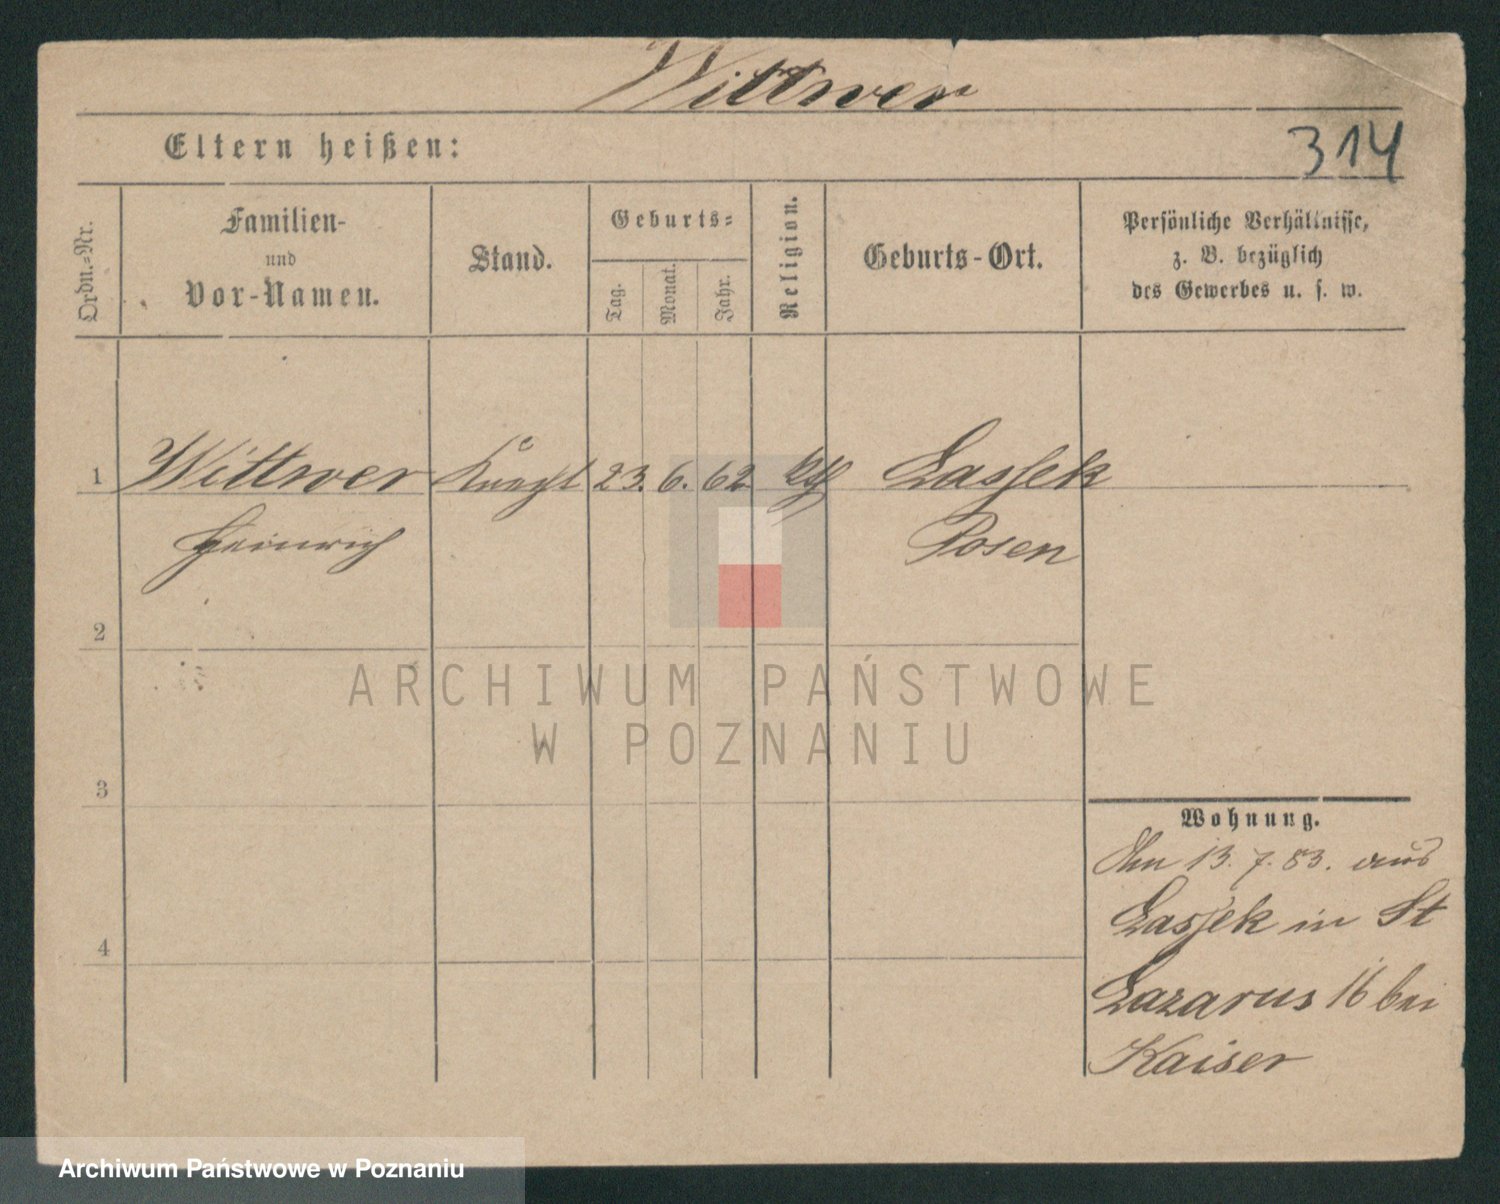 Wittwer
Eltern heißen:
314
Ordn.-Nr.
Familien-
und
Vor-Namen.
Stand.
Geburts-
Tag.
Monat.
Jahr.
Religion.
Geburts-Ort.
Persönliche Verhältnisse,
z. B. bezüglich
des Gewerbes u. s. w.
1 Wittwer Knecht 23. 6. 62 kth Lassek
Heinrich Posen
2
3
4
Wohnung.
Am 13. 7. 83. aus
Lassek in St
Lazarus 16 bei
Kaiser
ARCHIWUM PAŃSTWOWE
W POZNANIU
Archiwum Państwowe w Poznaniu